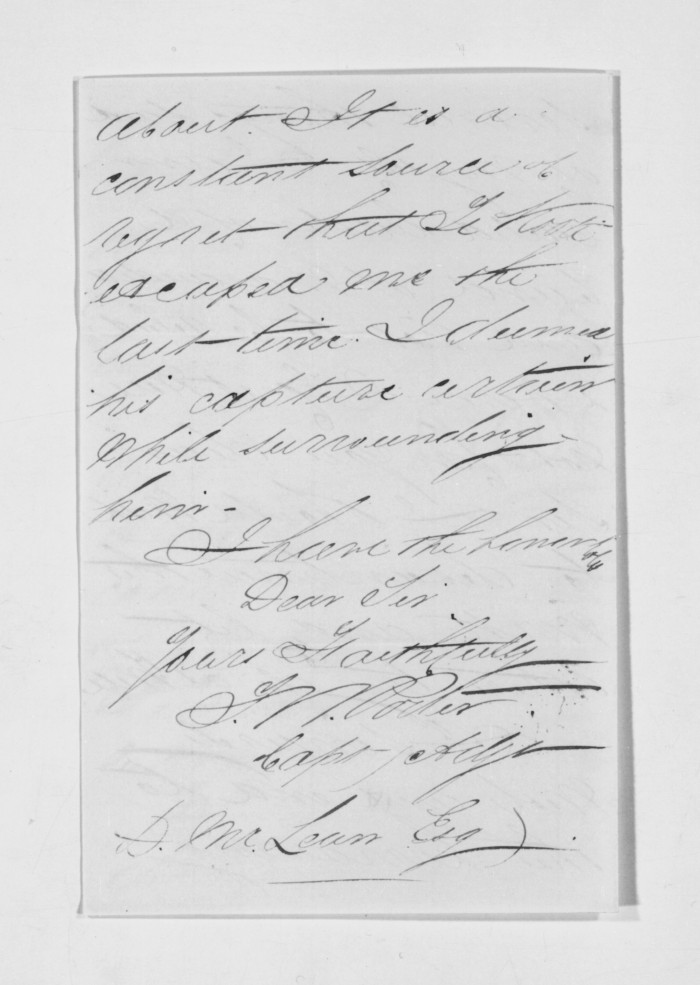 about. It is a
constant source of
regret that Te Kooti
escaped me the
last time. I deemed
his capture certain
while surrounding
him -
I have the honor to be
Dear Sir
Yours Faithfully
J. W. Porter
Capt - Adjt
D. Mc. Lean Esq